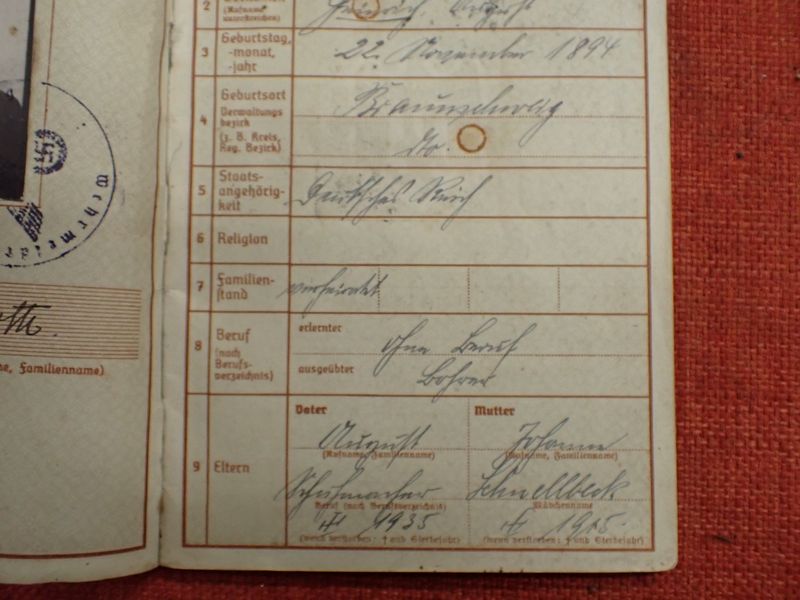 2
(Rufname
unterstreichen)
Heinrich, August
3
Geburtstag,
-monat,
-jahr
22. November 1894
4
Geburtsort
Verwaltungs
bezirk
(z. B. Kreis,
Reg. Bezirk)
Braunschweig
do.
5
Staats-
angehörig-
keit
Deutsches Reich
6
Religion
7
Familien-
stand
verheiratet
8
Beruf
(nach
Berufs-
verzeichnis)
erlernter
ohne Beruf
ausgeübter
Bohrer
9
Eltern
Vater
August
(Rufname, Familienname)
Schuhmacher
Beruf (nach Berufsverzeichnis)
† 1935
(wenn verstorben: † und Sterbejahr)
Mutter
Johanne
(Rufname, Familienname)
Schnellbeck
Mädchenname
† 1915.
(wenn verstorben: † und Sterbejahr)
Wehrmeld
e, Familienname)